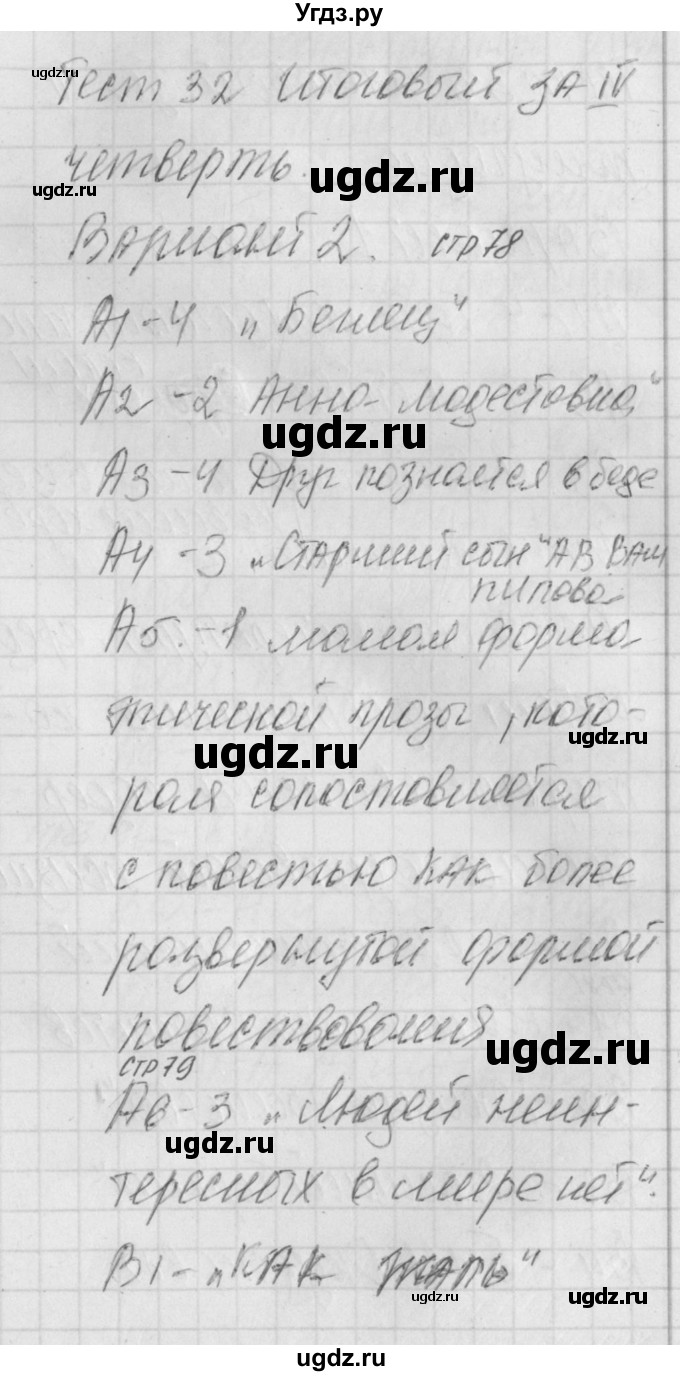 Угдз.ру
ugdz.ru
Тест 32 Итоговый за IV
ugdz.ru
четверть.
ugdz.ru
Вариант 2. стр 78
А1 - 4 „Беглец"
А2 - 2 Анна Модестовна"
ugdz.ru
А3 - 4 Друг познается в беде
А4 - 3 „Старший сын" АВ Вам
пилова
А5. - 1 малая форма
эпической прозы, кото-
ugdz.ru
ugdz.ru
рая сопоставляется
с повестью как более
развернутой формой
повествования
ugdz.ru
стр 79
А6 - 3 „Людей неин-
ugdz.ru
тересных в мире нет".
В1 - „Как жать"
ugdz.ru
ugdz.ru
ugdz.ru